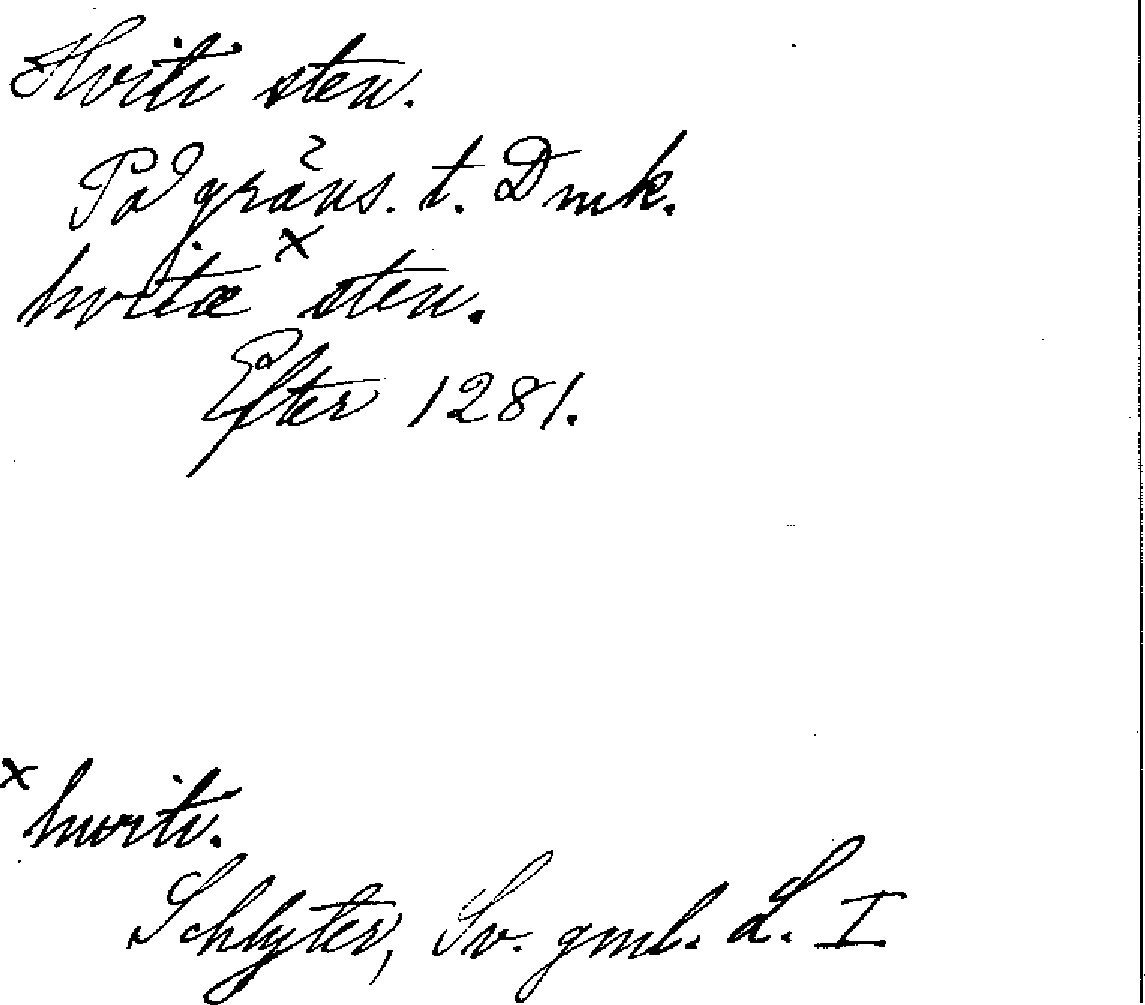 Hviti sten.
På gräns. t. Dmk.
hvitæ x sten.
Efter 1281.
x huiti.
Schlyter, Sv. gml. L. I